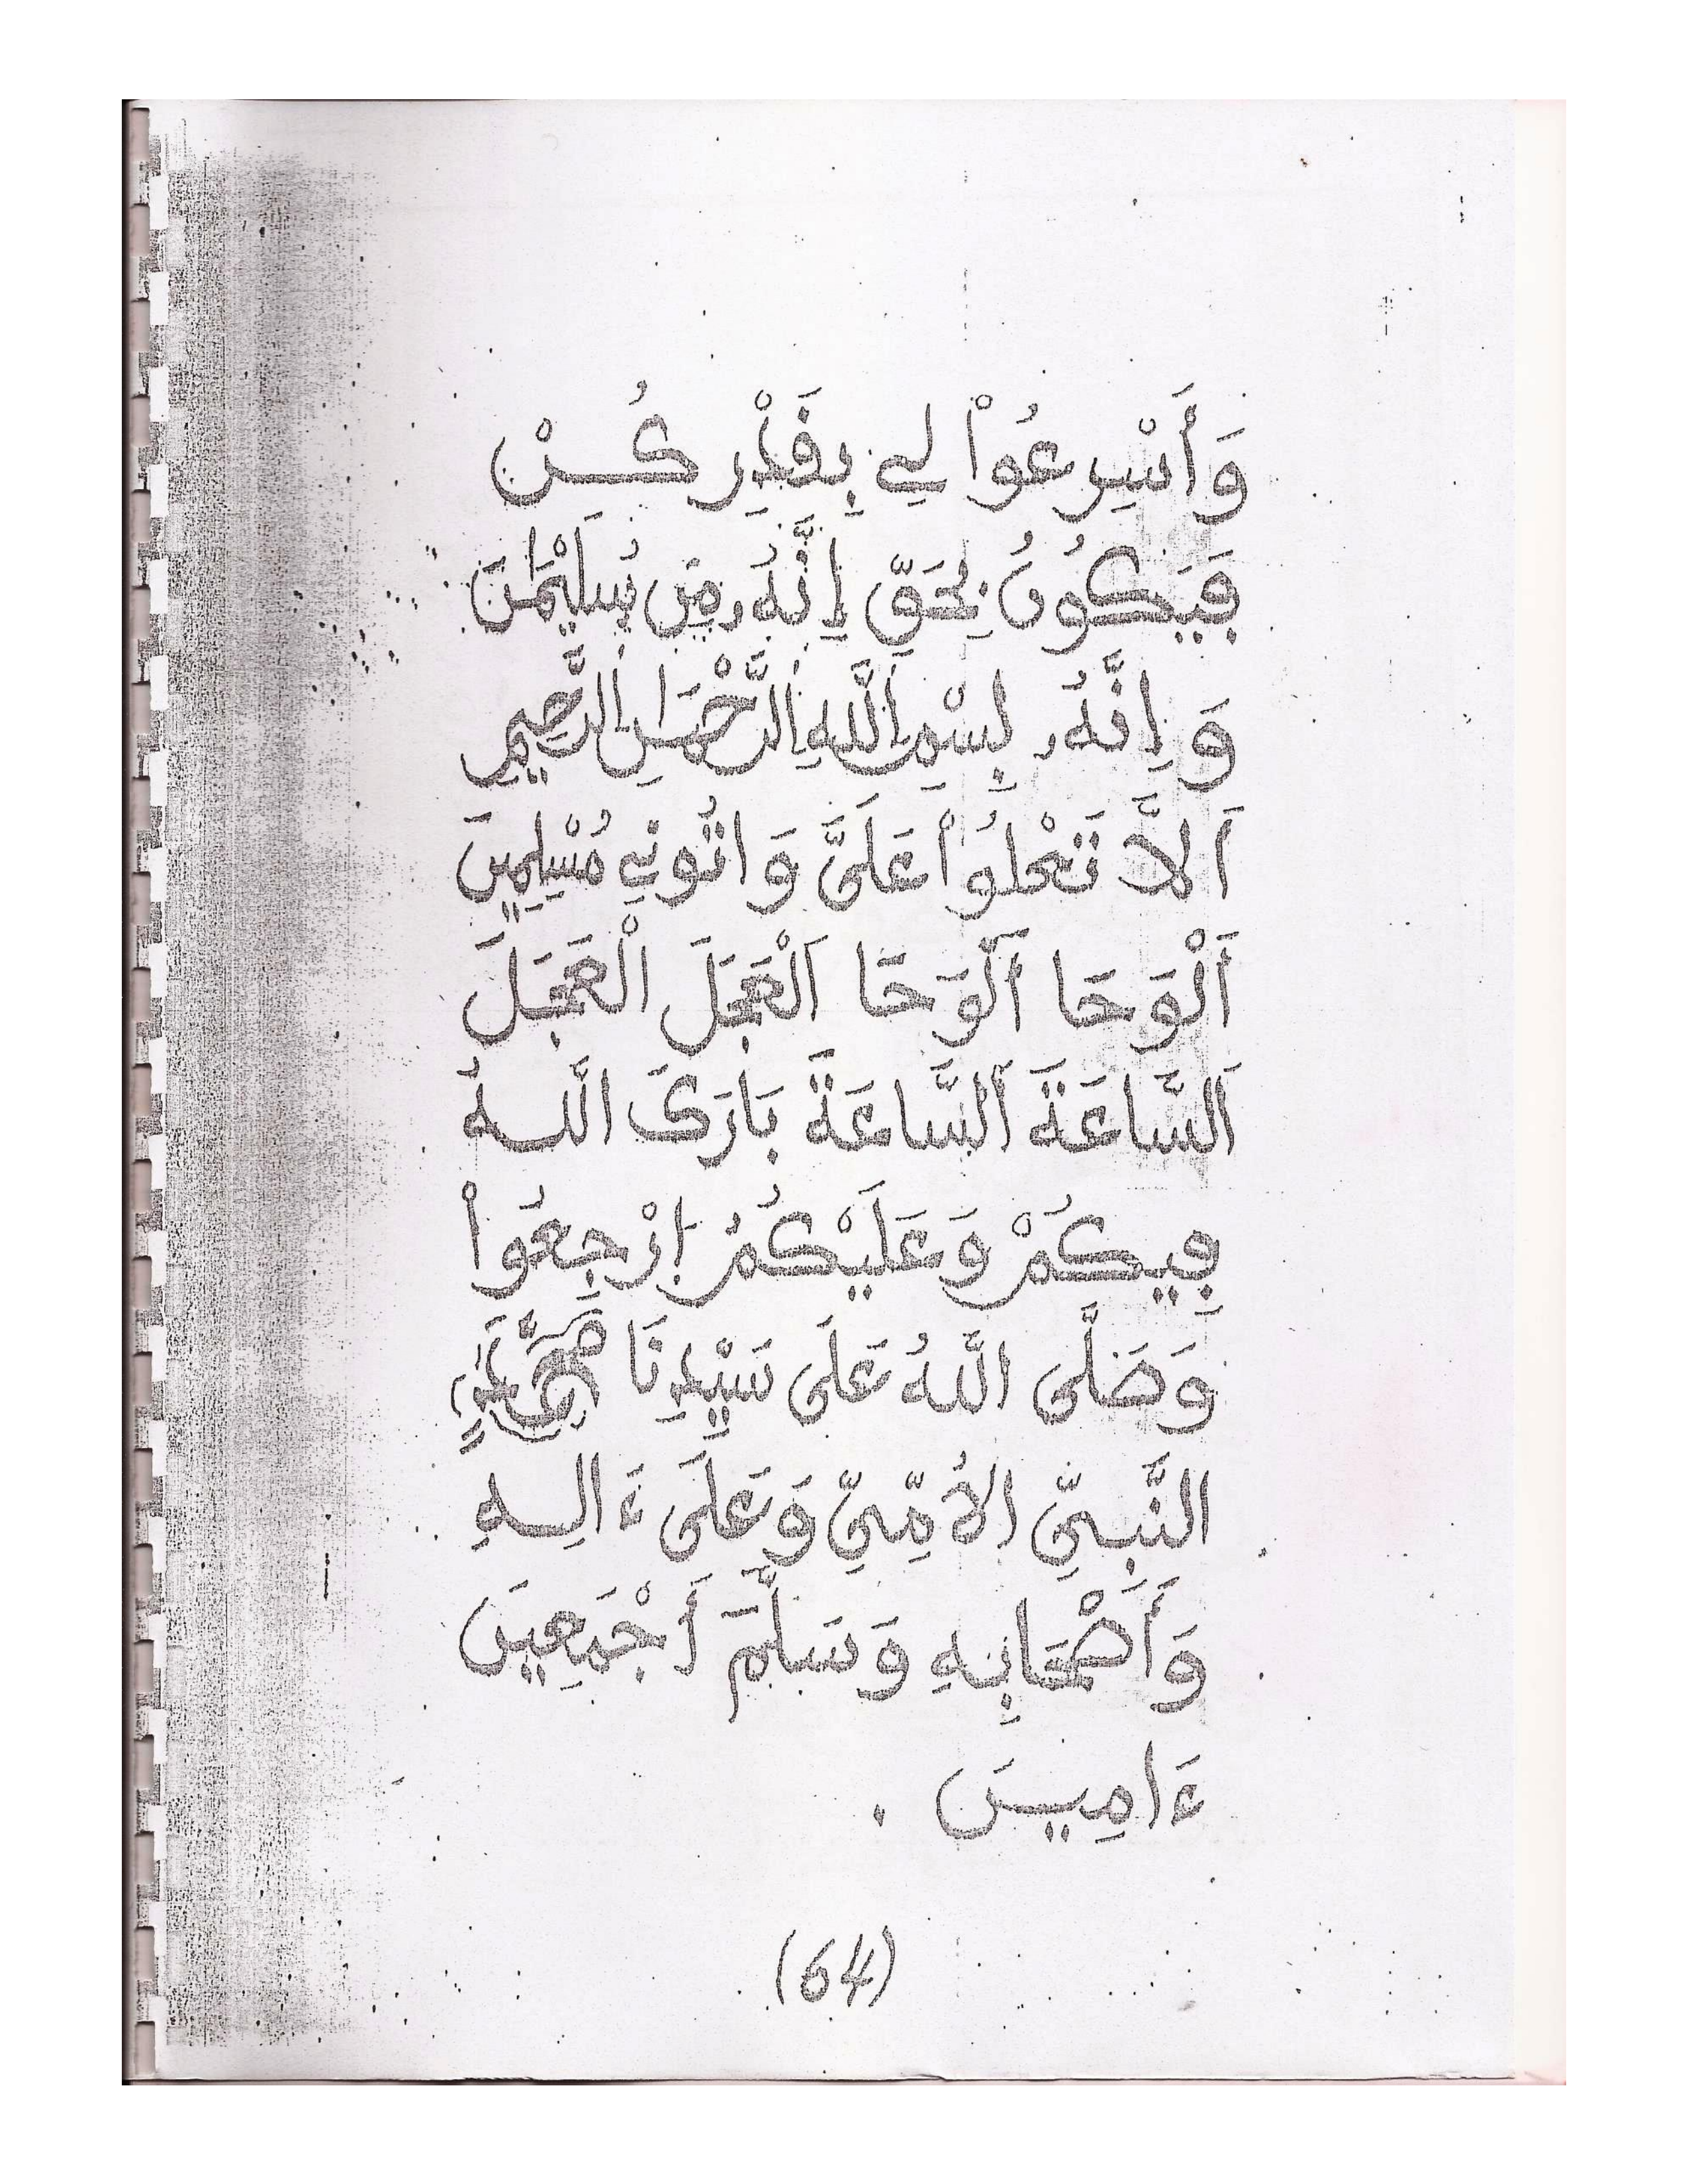 وَأَسْرِعُواْ لِي بِقَدْرِ كُنْ
فَيَكُونُ بِحَقِّ إِنَّهُ مِن سُلَيْمَٰنَ
وَإِنَّهُ بِسْمِ اللَّهِ الرَّحْمَٰنِ الرَّحِيمِ
أَلاَّ تَعْلُواْ عَلَىَّ وَاتُونِي مُسْلِمِينَ
أَلْوَحَا أَلْوَحَا اَلْعَجَلَ الْعَجَلَ
اَلسَّاعَةَ اَلسَّاعَةَ بَارَكَ اللَّهُ
فِيكُمْ وَعَلَيْكُمْ إِرْجِعُواْ
وَصَلَّى اللَّهُ عَلَى سَيِّدِنَا مُحَمَّدٍ
النَّبِيِّ الأُمِّيِّ وَعَلَى ءَالِهِ
وَأَصْحَابِهِ وَسَلَّمَ أَجْمَعِينَ
ءَامِينَ .
(64)